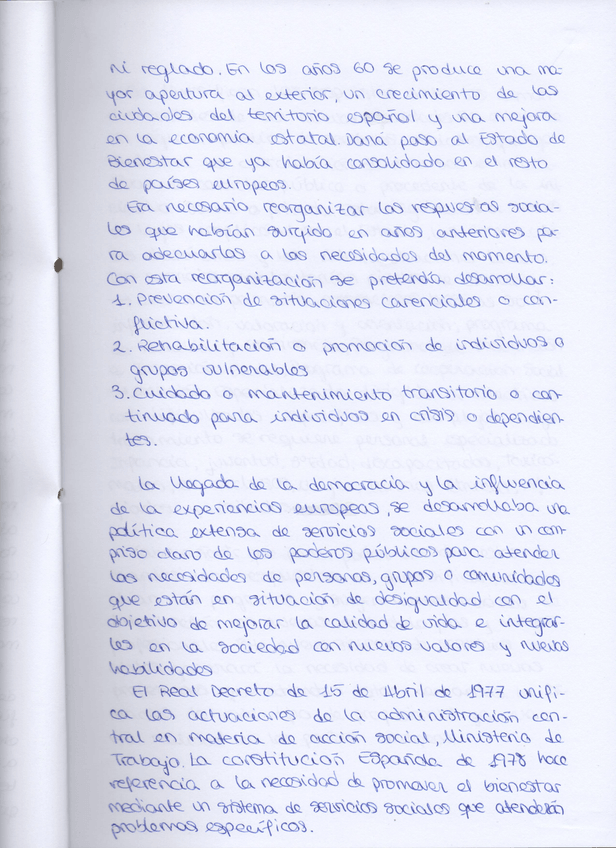 ni reglado. En los años 60 se produce una ma-
yor apertura al exterior, un crecimiento de las
ciudades del territorio español y una mejora
en la economía estatal. Dará paso al Estado de
Bienestar que ya había consolidado en el resto
de países europeos.
Era necesario reorganizar las respuestas socia-
les que habían surgido en años anteriores pa-
ra adecuarlas a las necesidades del momento.
Con esta reorganización se pretendía desarrollar:
1. Prevención de situaciones carenciales o con-
flictiva.
2. Rehabilitación o promoción de individuos o
grupos vulnerables
3. Cuidado o mantenimiento transitorio o con-
tinuado para individuos en crisis o dependien-
tes.
La llegada de la democracia y la influencia
de la experiencias europeas, se desarrollaba una
política extensa de servicios sociales con un com-
priso claro de los poderes públicos para atender
las necesidades de personas, grupos o comunidades
que están en situación de desigualdad con el
objetivo de mejorar la calidad de vida e integrar-
les en la sociedad con nuevos valores y nuevas
habilidades
El Real Decreto de 15 de Abril de 1977 unifi-
ca las actuaciones de la administración cen-
tral en materia de acción social, Ministerio de
Trabajo. La constitución Española de 1978 hace
referencia a la necesidad de promover el bienestar
mediante un sistema de servicios sociales que atenderán
problemas específicos.